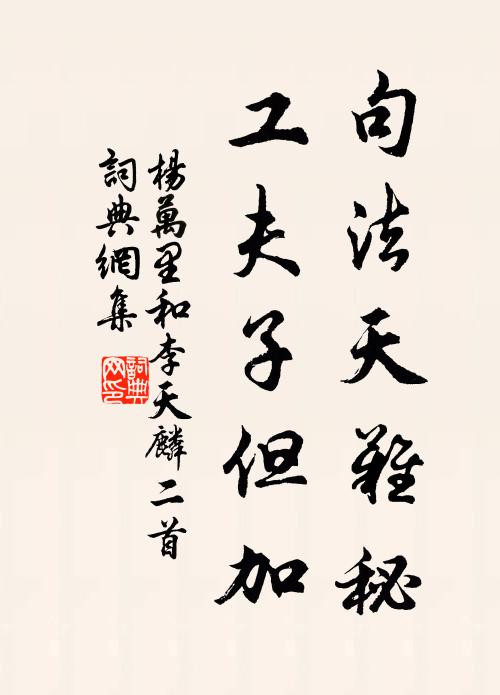 句法天難秘
工夫子但加
楊萬里和李天麟二首
詞典網集
詞典
网印